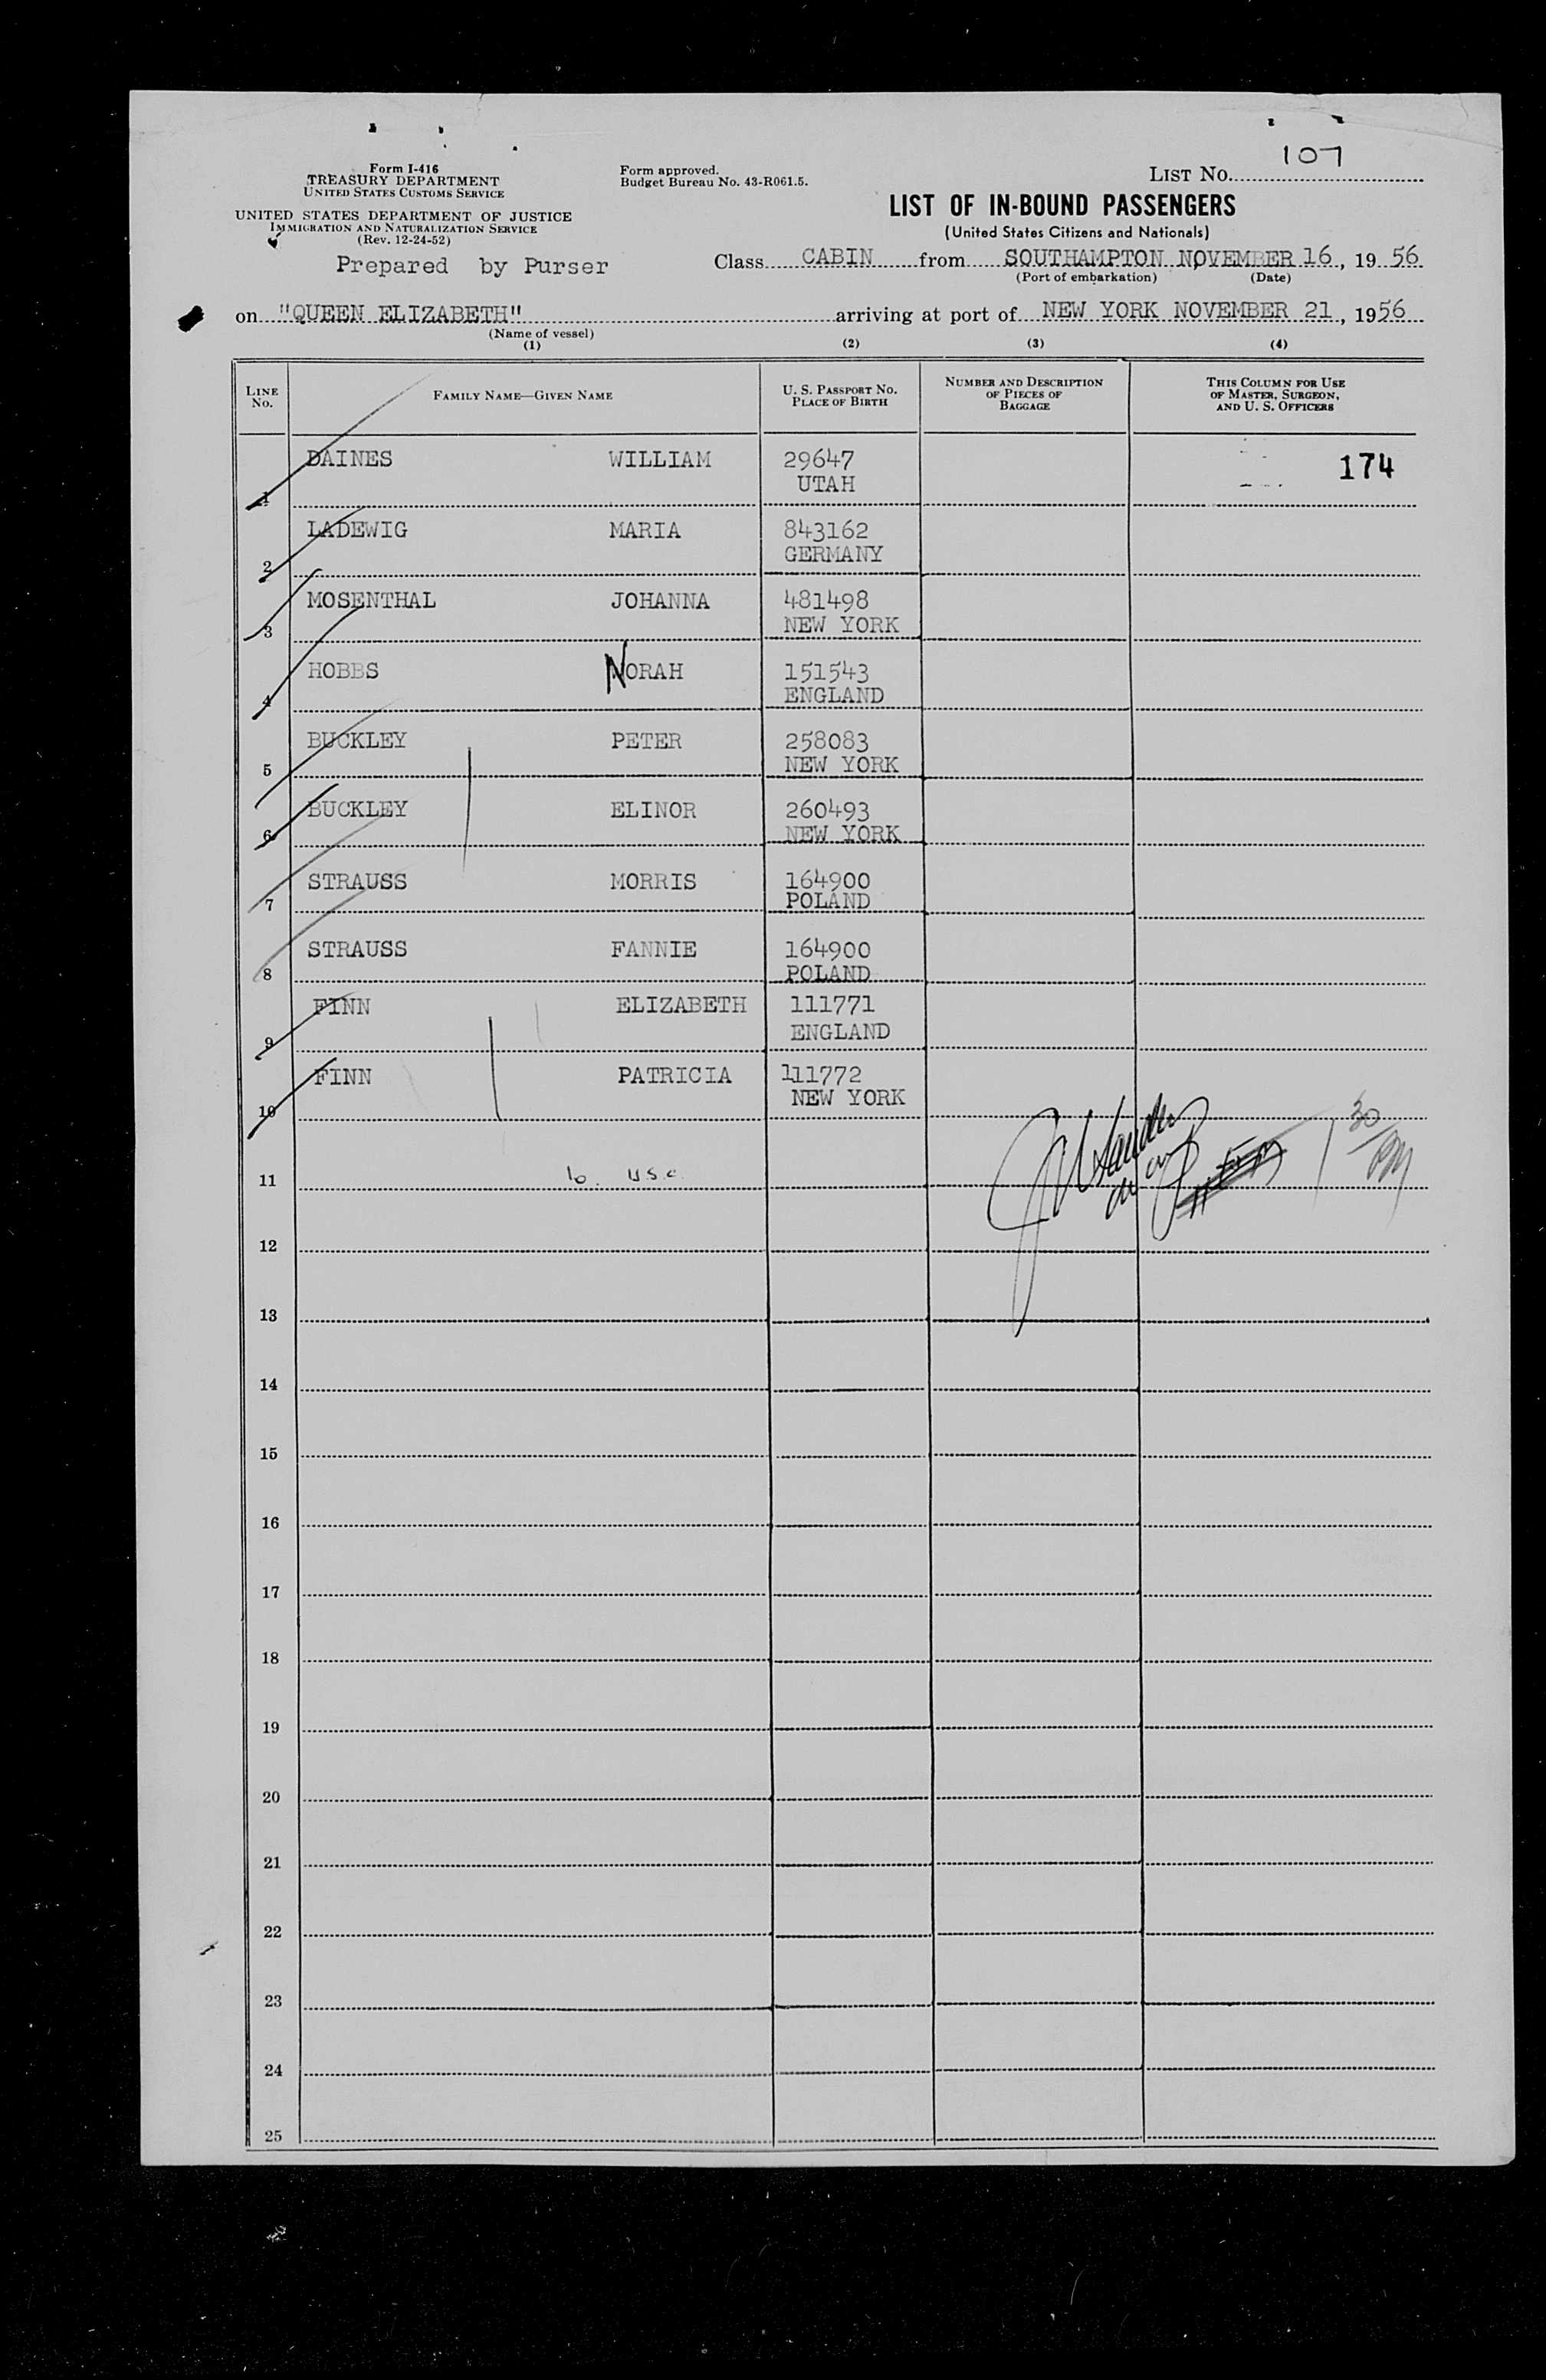 107
Form I-416
TREASURY DEPARTMENT
UNITED STATES CUSTOMS SERVICE
Form approved.
Budget Bureau No. 43-R061.5.
LIST NO.
UNITED STATES DEPARTMENT OF JUSTICE
IMMIGRATION AND NATURALIZATION SERVICE
(Rev. 12-24-52)
LIST OF IN-BOUND PASSENGERS
(United States Citizens and Nationals)
Prepared by Purser
Class CABIN from SOUTHAMPTON NOVEMBER 16, 19 56
(Port of embarkation) (Date)
on "QUEEN ELIZABETH" arriving at port of NEW YORK NOVEMBER 21, 1956
(Name of vessel)
(1) (2) (3) (4)
LINE NO. FAMILY NAME—GIVEN NAME U. S. PASSPORT NO. PLACE OF BIRTH NUMBER AND DESCRIPTION OF PIECES OF BAGGAGE THIS COLUMN FOR USE OF MASTER, SURGEON, AND U. S. OFFICERS
1 DAINES WILLIAM 29647 174
UTAH
2 LADEWIG MARIA 843162
GERMANY
3 MOSENTHAL JOHANNA 481498
NEW YORK
4 HOBBS NORAH 151543
ENGLAND
5 BUCKLEY PETER 258083
NEW YORK
6 BUCKLEY ELINOR 260493
NEW YORK
7 STRAUSS MORRIS 164900
POLAND
8 STRAUSS FANNIE 164900
POLAND
9 FINN ELIZABETH 111771
ENGLAND
10 FINN PATRICIA 111772
NEW YORK
30
PM
11 10. U.S.C.
12
13
14
15
16
17
18
19
20
21
22
23
24
25